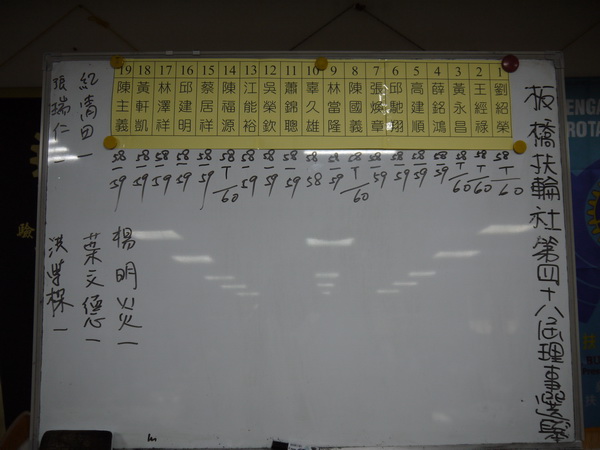 板橋扶輪社第四十八屆理事選舉
1 劉紹榮 58 T 60
2 王經祿 58 T 60
3 黃永昌 58 T 60
4 薛銘鴻 58 59
5 高建順 58 59
6 邱馳翔 58 59
7 張煥章 58 59
8 陳國義 58 T 60
9 林當隆 58 59
10 辜久雄 58 58
11 蕭錦聰 58 59
12 吳榮欽 58 59
13 江能裕 58 59
14 陳福源 58 T 60
15 蔡居祥 58 59
16 邱建明 58 59
17 林澤祥 58 59
18 黃軒凱 58 59
19 陳主義 58 59
紅清田 一
張瑞仁 一
楊明炎 一
葉文德 一
ENGA
ROTA